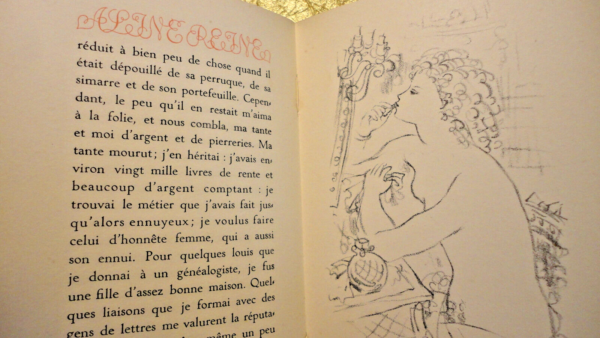 ALINE REINE
réduit à bien peu de chose quand il
était dépouillé de sa perruque, de sa
simarre et de son portefeuille. Cepen-
dant, le peu qu'il en restait m'aima
à la folie, et nous combla, ma tante
et moi d'argent et de pierreries. Ma
tante mourut ; j'en héritai : j'avais en-
viron vingt mille livres de rente et
beaucoup d'argent comptant : je
trouvai le métier que j'avais fait jus-
qu'alors ennuyeux ; je voulus faire
celui d'honnête femme, qui a aussi
son ennui. Pour quelques louis que
je donnai à un généalogiste, je fus
une fille d'assez bonne maison. Quel-
ques liaisons que je formai avec des
gens de lettres me valurent la réputa-
même un peu